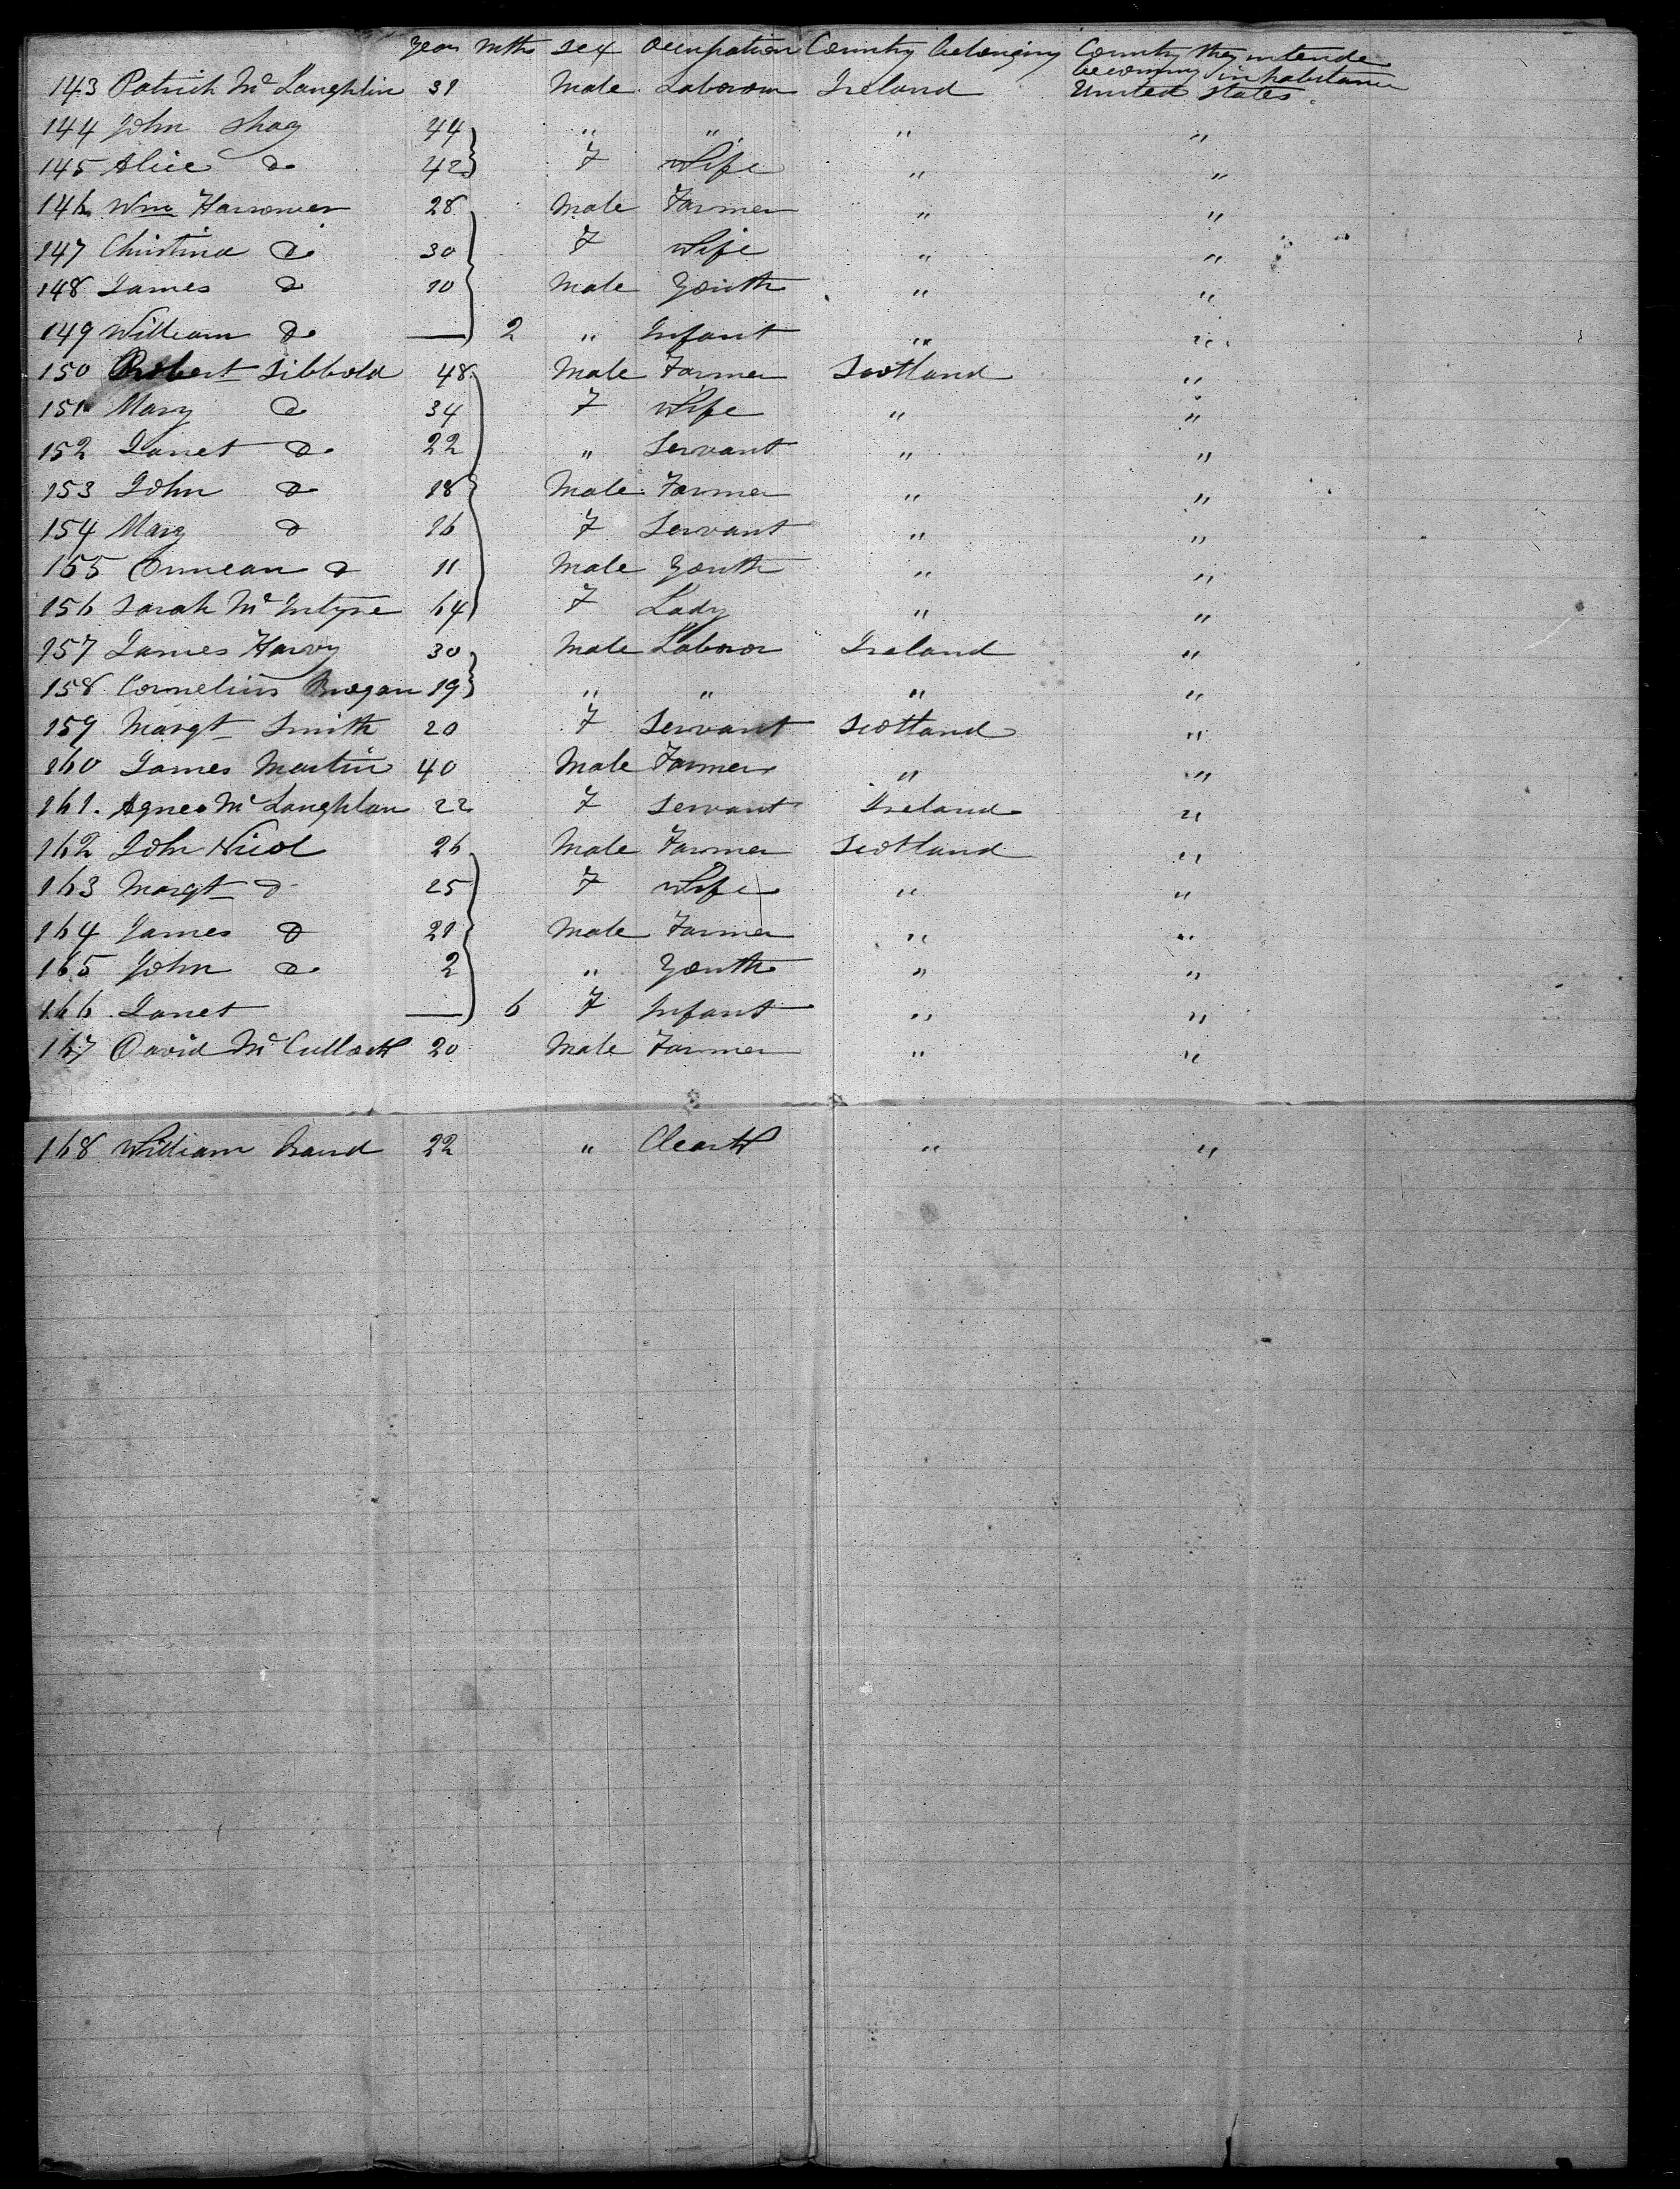 Years Mths Sex Occupation Country belonging Country they intende
becoming inhabitance
143 Patrick Mc Laughlin 31 Male Labourour Ireland United States.
144 John Shay 44 " " " "
145 Alice Do 42 F Wife " "
146 Wm Harrower 28 Male Farmer " "
147 Christina Do 30 F Wife " "
148 James Do 10 Male Youth " "
149 William Do — 2 " Infant " "
150 Robert Sibbold 48 Male Farmer Scotland "
151 Mary Do 34 F Wife " "
152 Janet Do 22 " Servant " "
153 John Do 18 Male Farmer " "
154 Mary Do 16 F Servant " "
155 Duncan Do 11 Male Youth " "
156 Sarah Mc Intyre 64 F Lady " "
157 James Harvy 30 Male Laboror Ireland "
158 Cornelius Brogan 19 " " " "
159 Margt Smith 20 F Servant Scotland "
160 James Martin 40 Male Farmer " "
161. Agnes Mc Laughlan 22 F Servant Ireland "
162 John Nicol 26 Male Farmer Scotland "
163 Margt Do 25 F Wife " "
164 James Do 21 Male Farmer " "
165 John Do 2 " Youth " "
166 Janet — 6 F Infant " "
167 David Mc Culloch 20 Male Farmer " "
168 William Brand 22 " Cleark " "